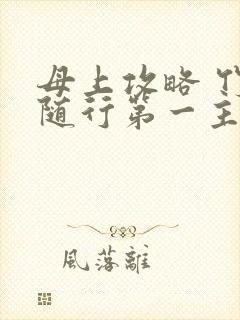 母上攻略
随行第一主
風落離